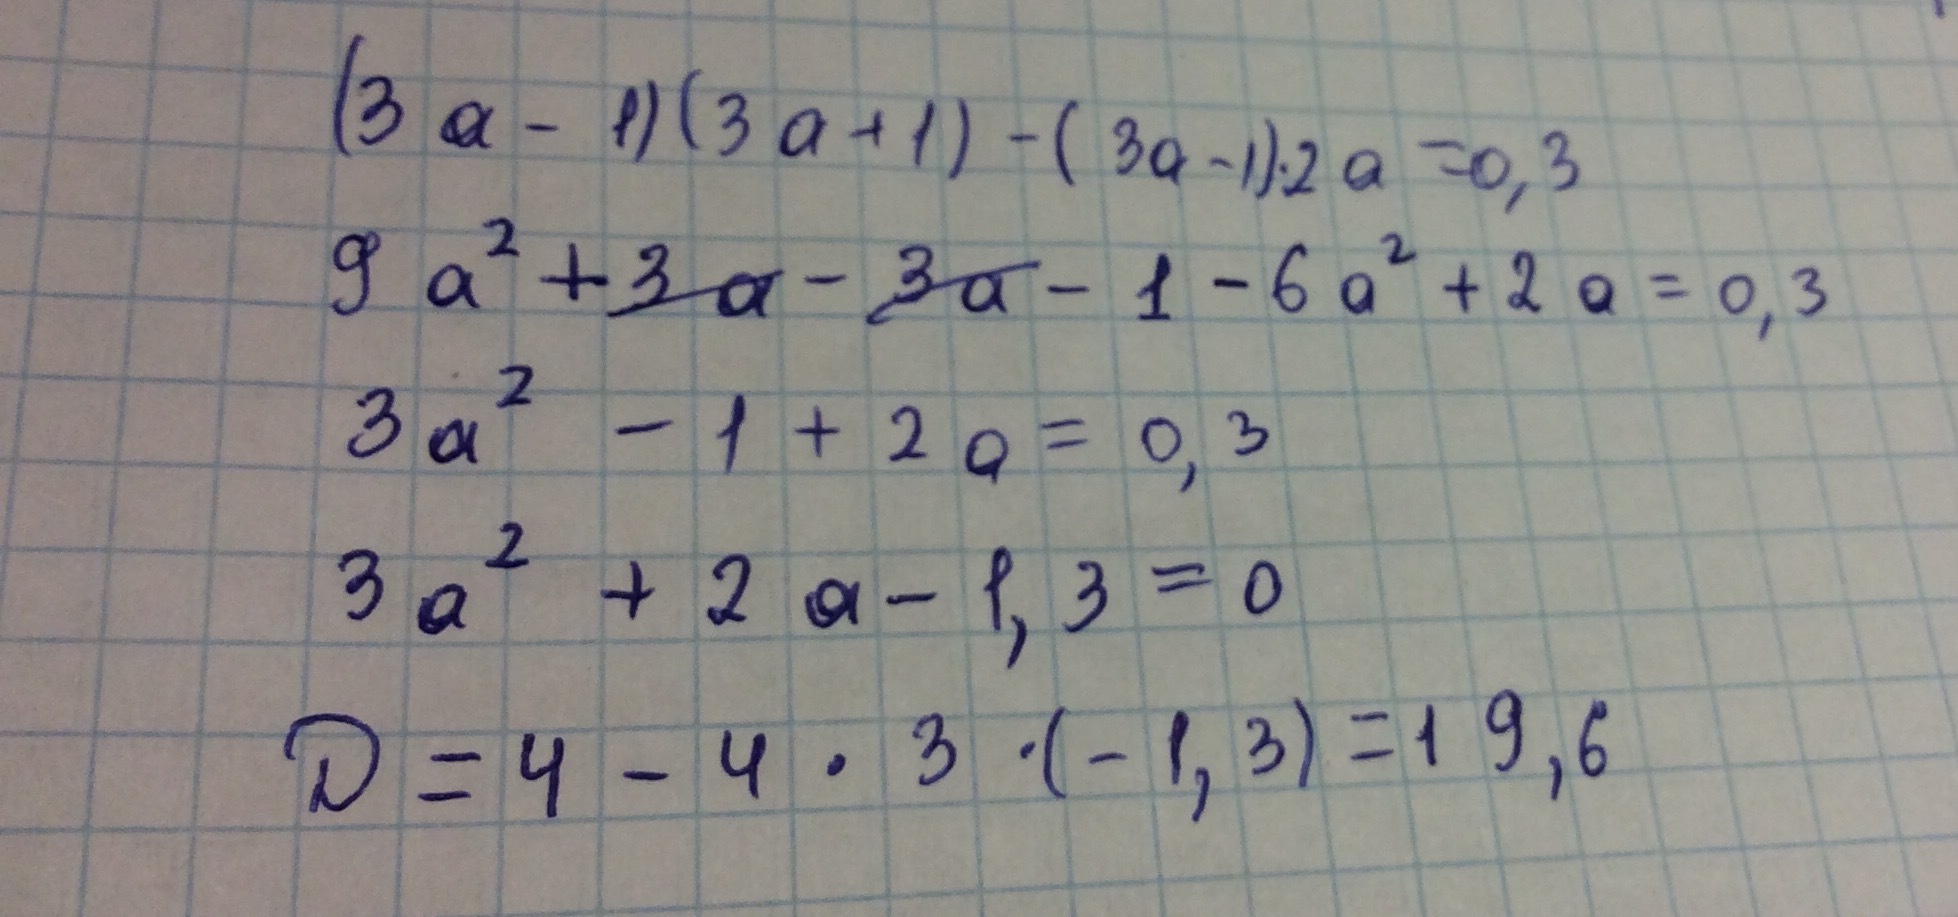 (3a - 1)(3a + 1) - (3a - 1)·2a = 0,3
9a² + 3a - 3a - 1 - 6a² + 2a = 0,3
3a² - 1 + 2a = 0,3
3a² + 2a - 1,3 = 0
D = 4 - 4 · 3 · (- 1,3) = 19,6